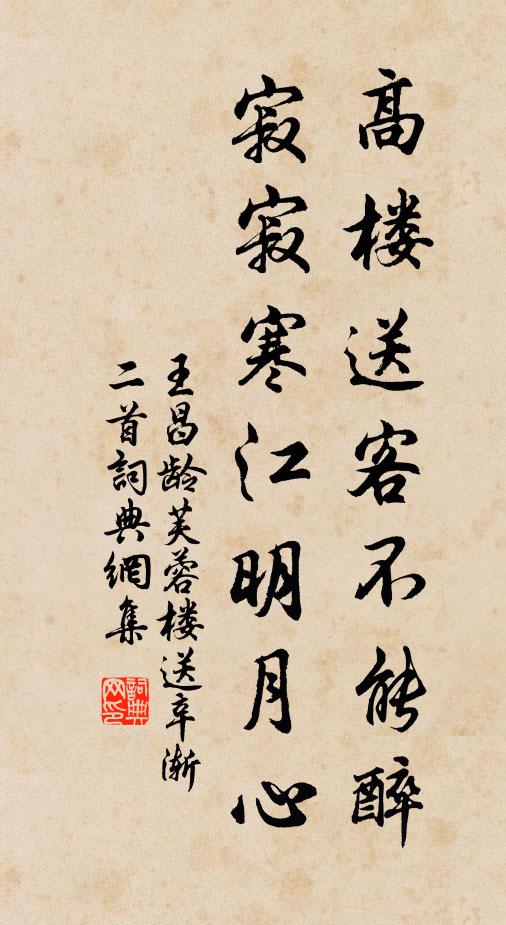 高楼送客不能醉
寂寂寒江明月心
王昌龄芙蓉楼送辛渐
二首詞典網集
詞典
网印